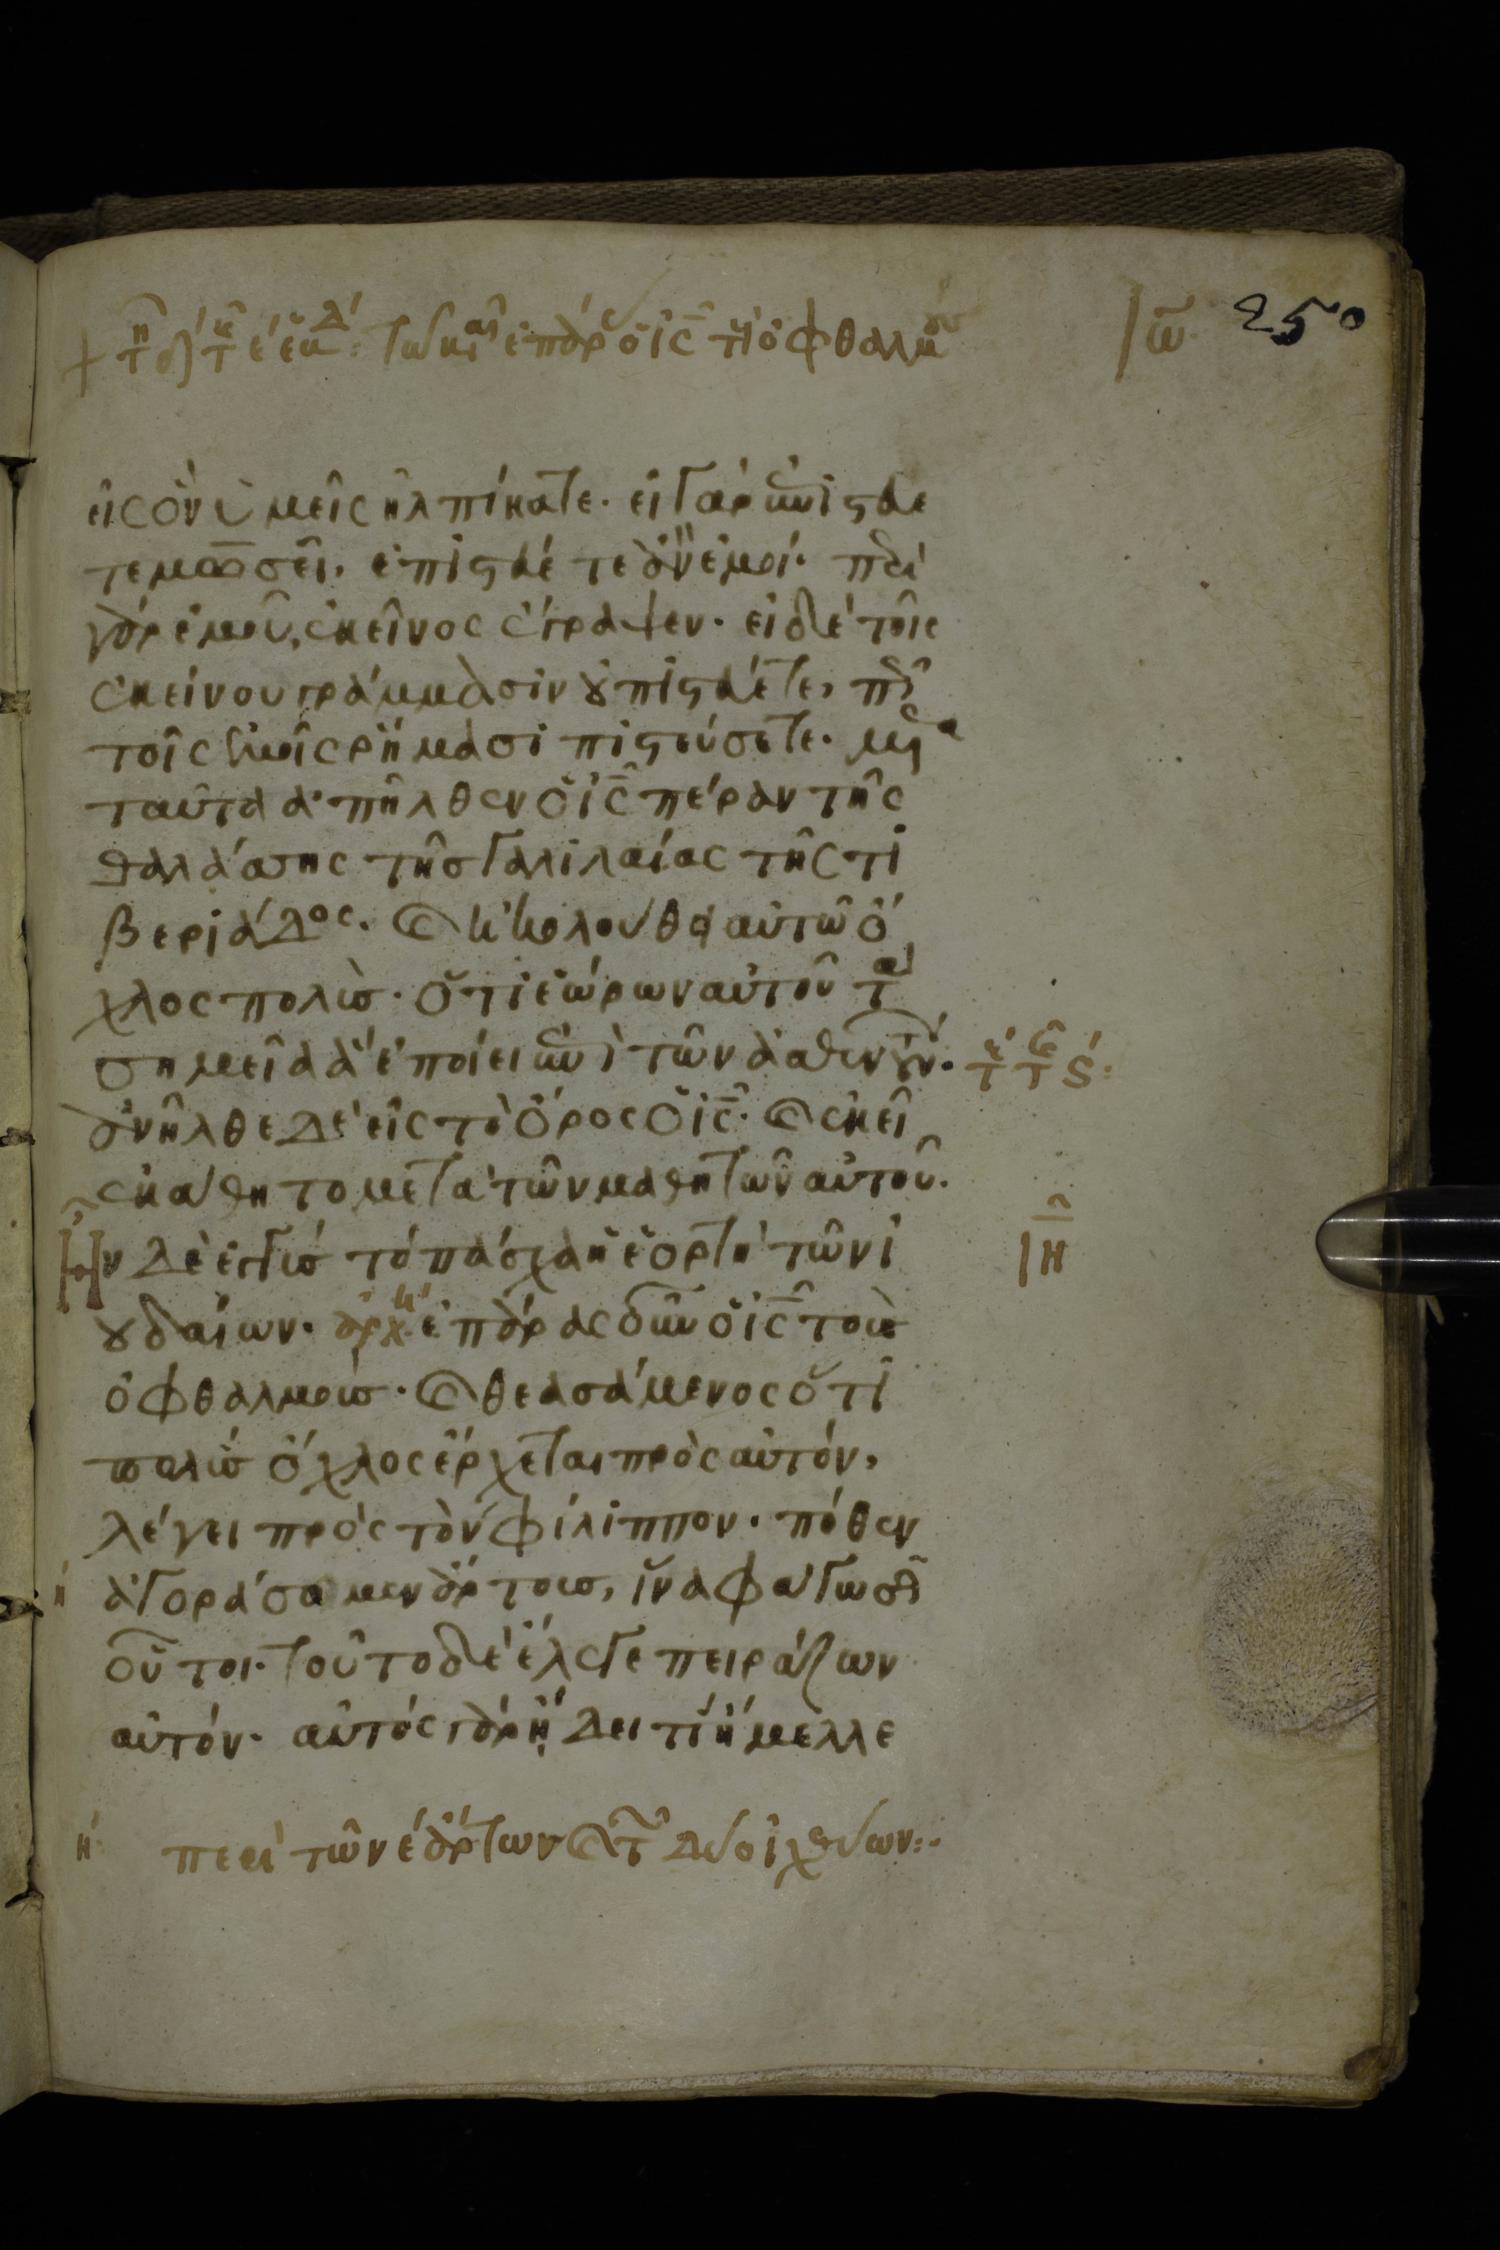 250
εἰς ὃν ὑμεῖς ἠλπίκατε. εἰ γὰρ ἐπιστεύε
τε μωσεῖ, ἐπιστεύετε ἂν ἐμοί. περὶ
γὰρ ἐμοῦ, ἐκεῖνος ἔγραψεν. εἰ δὲ τοῖς
ἐκείνου γράμμασιν οὐ πιστεύετε, πῶς
τοῖς ἐμοῖς ρήμασι πιστεύσετε. μετὰ
ταῦτα ἀπῆλθεν ὁ ις πέραν τῆς
θαλάσσης τῆς γαλιλαίας τῆς τι
βεριάδος. καὶ ἠκολούθει αὐτῶ ὄ
χλος πολὺς. ὅτι ἑώρων αὐτοῦ τὰ
σημεῖα ἃ ἐποίει ἐπὶ τῶν ἀσθενούν.
ἀνῆλθε δὲ εἰς τὸ ὄρος ὁ ις. καὶ ἐκεῖ
ἐκάθητο μετὰ τῶν μαθητῶν αὐτοῦ.
Ἦν δὲ ἐγγὺς τὸ πάσχα ἡ ἑορτὴ τῶν ἰ
ουδαίων. ἀρχ ἐπάρας οὖν ὁ ις τοὺς
ὀφθαλμοὺς. καὶ θεασάμενος ὅτι
πολὺς ὄχλος ἔρχεται πρὸς αὐτόν,
λέγει πρὸς τὸν φίλιππον. πόθεν
ἀγοράσομεν ἄρτους, ἵνα φάγωσιν
οὗτοι. τοῦτο δὲ ἔλεγε πειράζων
αὐτόν. αὐτὸς γὰρ ᾔδει τί ἤμελλε
η περὶ τῶν ε ἄρτων καὶ τ δύο ἰχθύων: